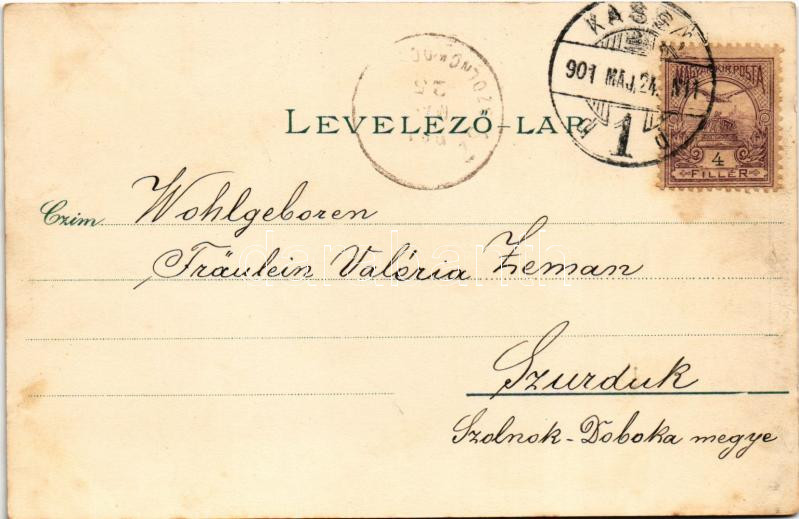 KASSA
901 MÁJ. 24. N11
1
MAGYAR KIR. POSTA
4
FILLÉR
LEVELEZŐ-LAP
Czim. Wohlgeboren
Fräulein Valéria Zeman
Szurduk
Szolnok-Doboka megye
darabanth